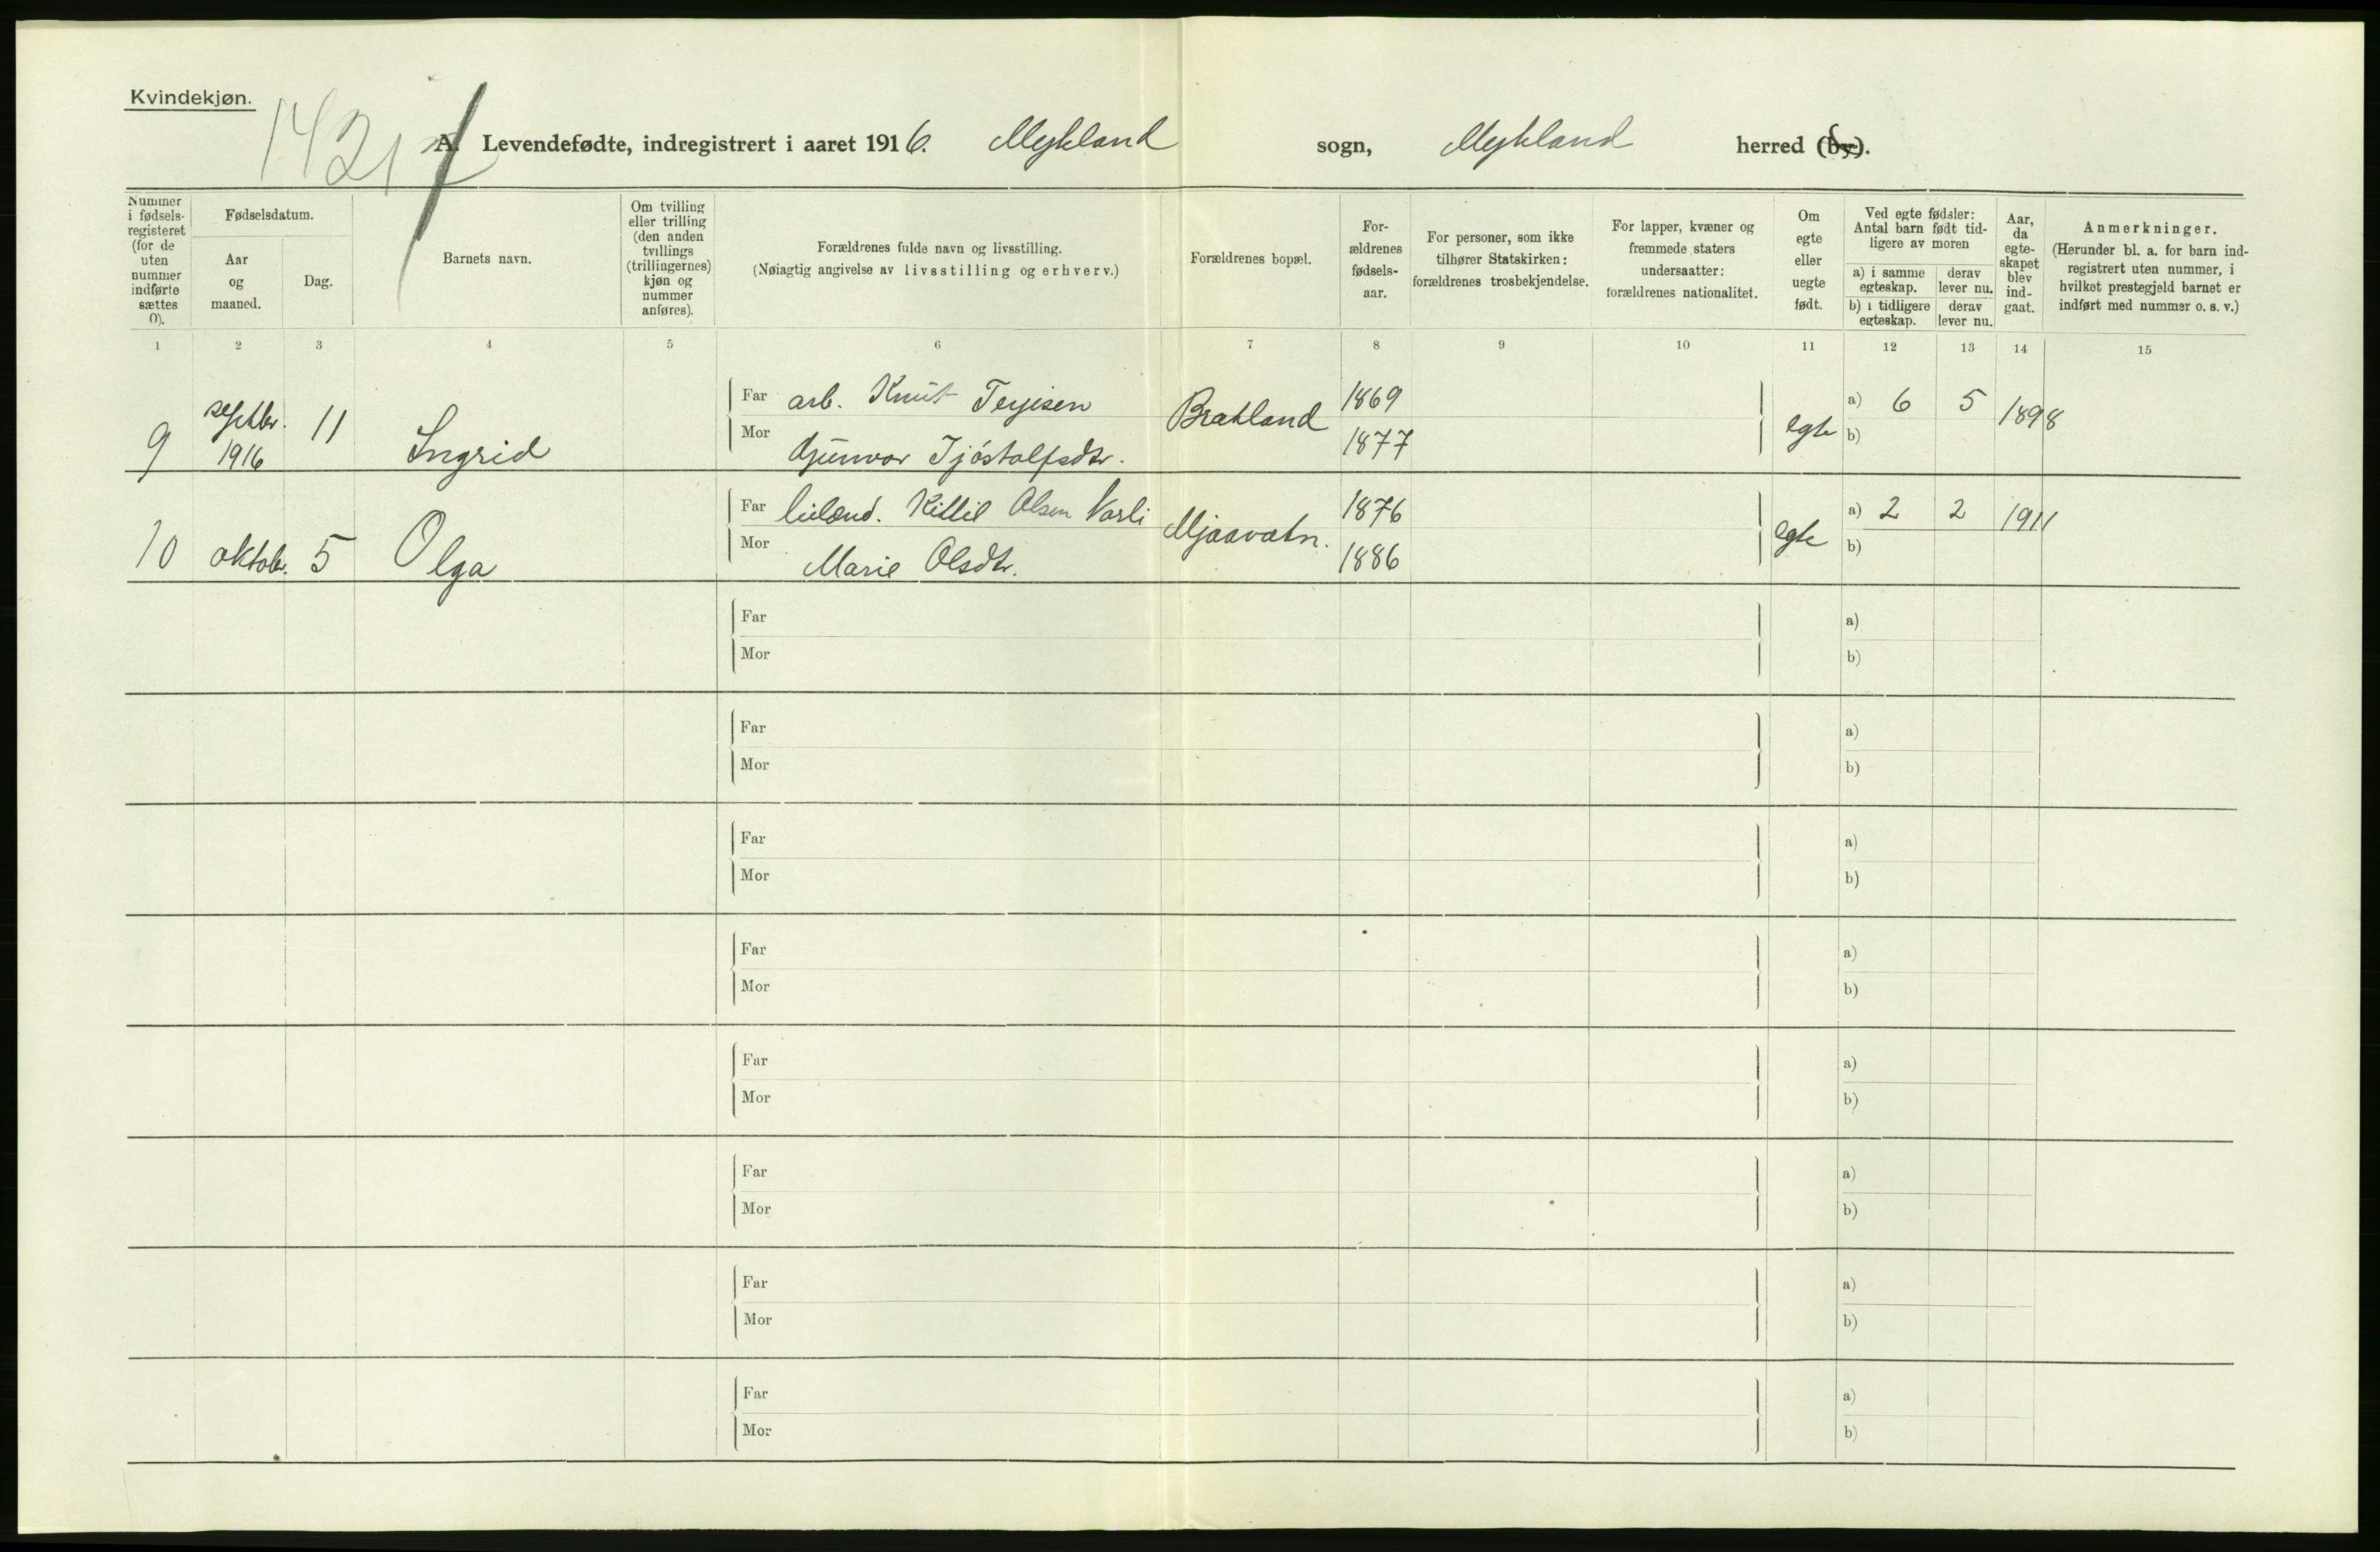 Kvindekjøn.
A. Levendefødte, indregistrert i aaret 1916. Mykland sogn, Mykland herred (by).
Nummer i fødsels- registeret (for de uten nummer indførte sættes 0).
Fødselsdatum.
Aar og maaned.
Dag.
Barnets navn.
Om tvilling eller trilling (den anden tvillings (trillingernes) kjøn og nummer anføres).
Forældrenes fulde navn og livsstilling.
(Nøiagtig angivelse av livsstilling og erhverv.)
Forældrenes bopæl.
For- ældrenes fødsels- aar.
For personer, som ikke tilhører Statskirken: forældrenes trosbekjendelse.
For lapper, kvæner og fremmede staters undersaatter: forældrenes nationalitet.
Om egte eller uegte født.
Ved egte fødsler: Antal barn født tid- ligere av moren
a) i samme egteskap.
derav lever nu.
b) i tidligere egteskap.
derav lever nu.
Aar, da egte- skapet blev ind- gaat.
Anmerkninger.
(Herunder bl. a. for barn ind- registrert uten nummer, i hvilket prestegjeld barnet er indført med nummer o. s. v.)
1 2 3 4 5 6 7 8 9 10 11 12 13 14 15
Far arb. Knut Terjesen 1869 a) 6 5
9 septbr. 1916 11 Ingrid Brakland egte 1898
Mor Gunvor Tjóstolfsdtr. 1877 b)
Far Kittil Olsen Varli 1876 a) 2 2 1911
10 oktober. 5 Olga Mjaavatn. egte
Mor Marie Olsdtr. 1886 b)
Far a)
Mor b)
Far a)
Mor b)
Far a)
Mor b)
Far a)
Mor b)
Far a)
Mor b)
Far a)
Mor b)
Far a)
Mor b)
Far a)
Mor b)